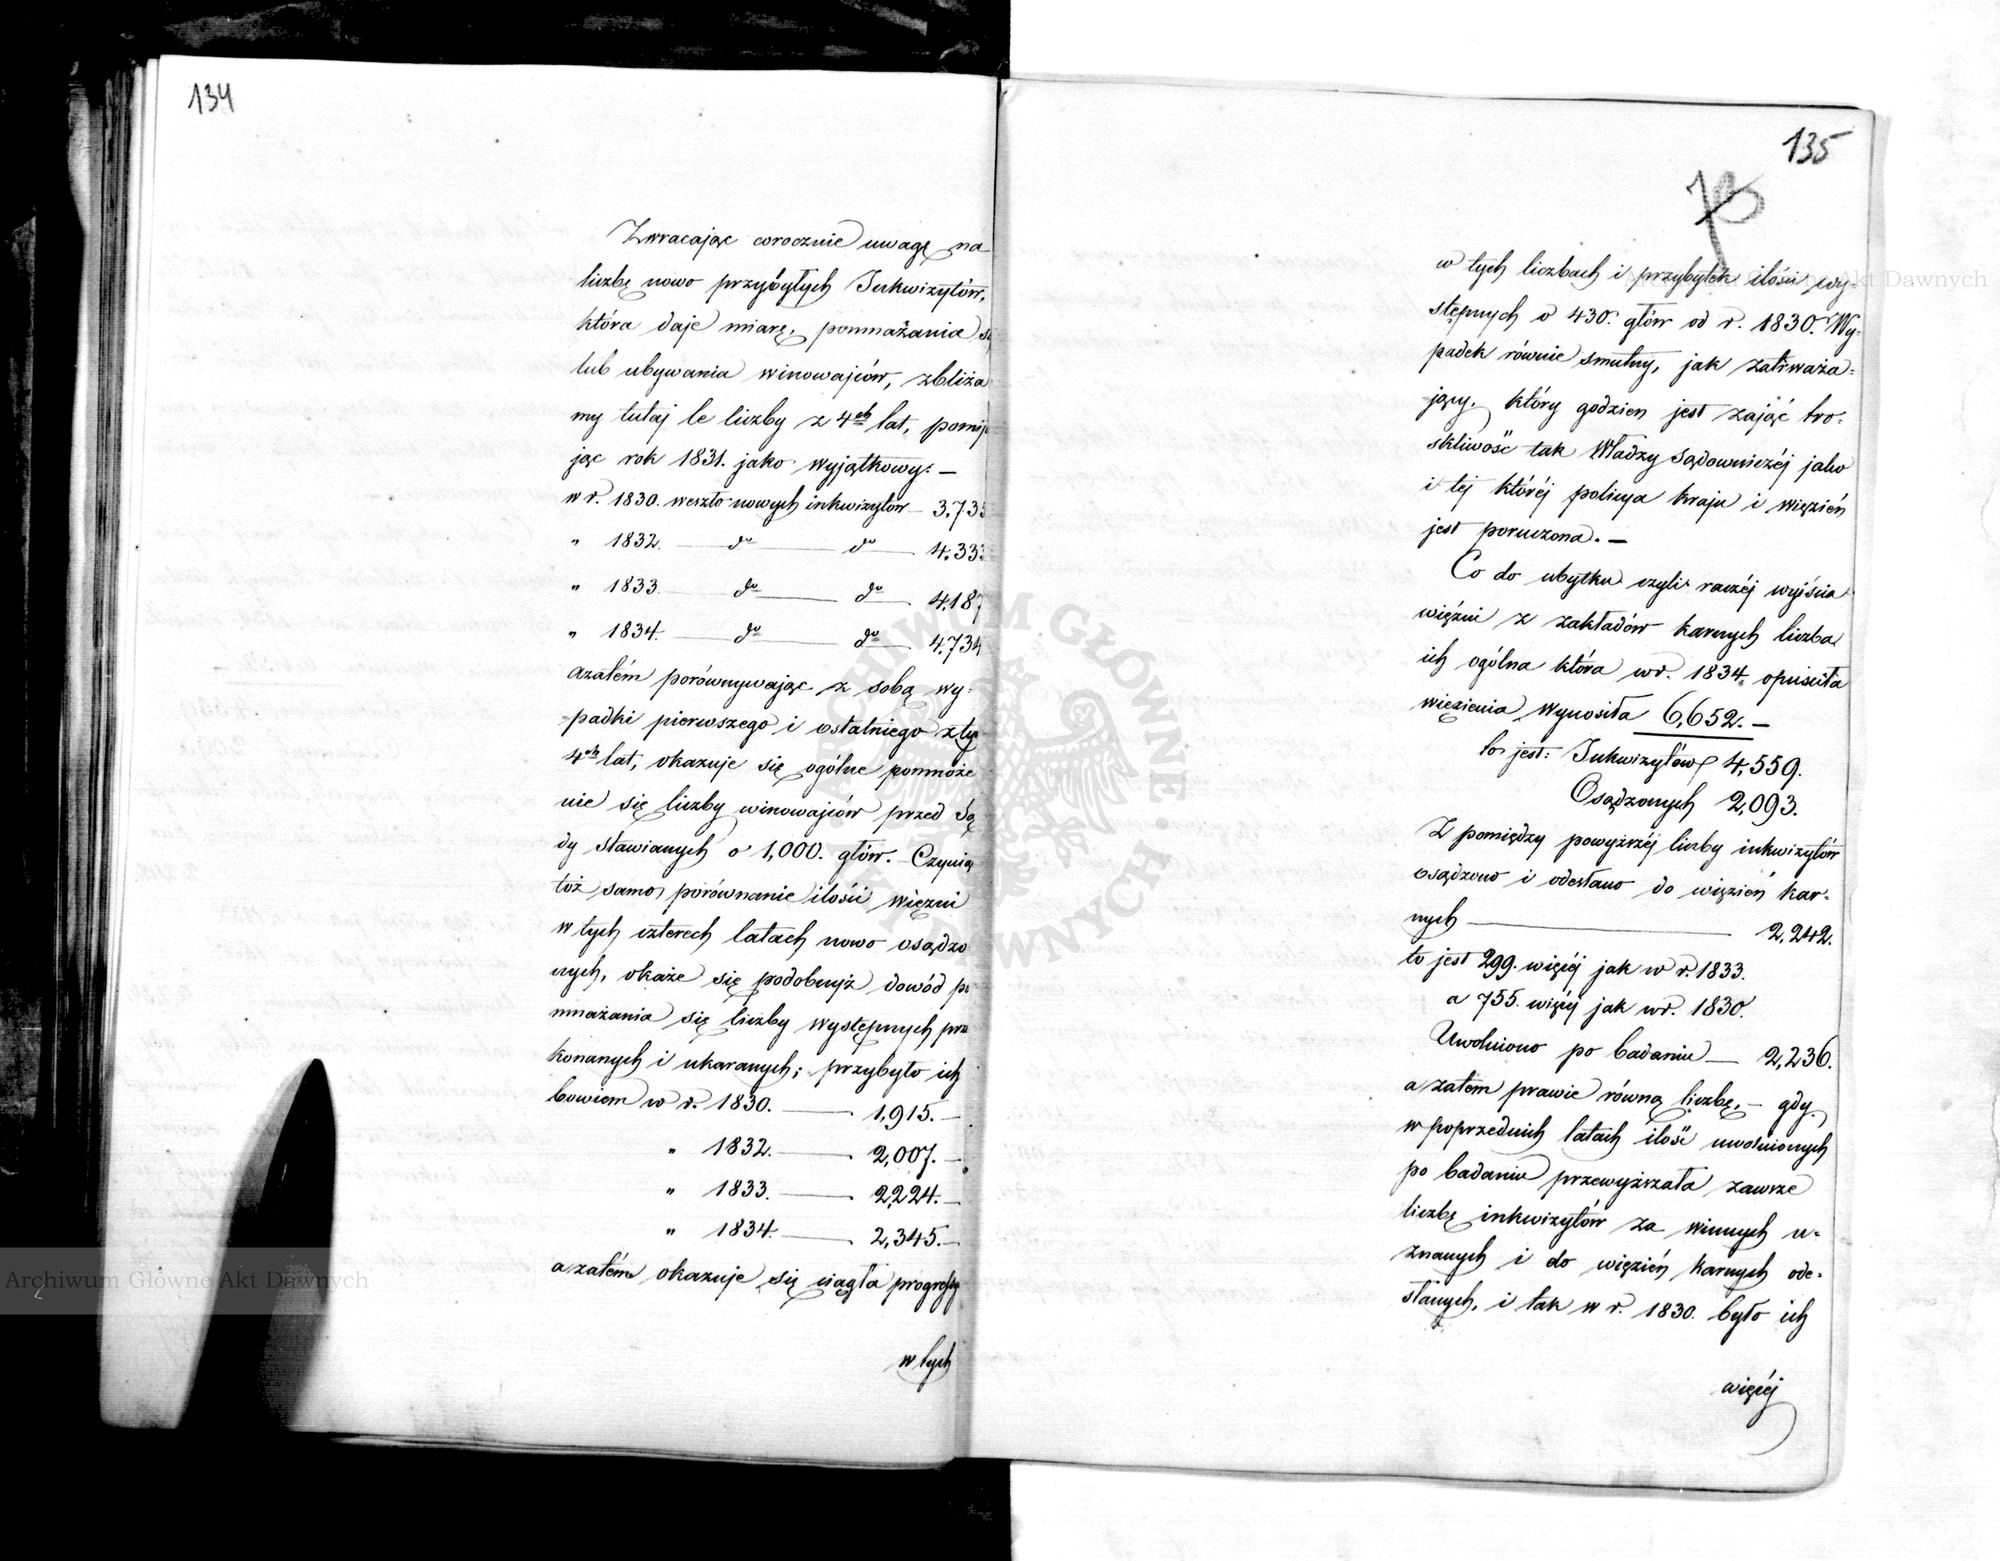 134
Zwracając corocznie uwagę na
liczbę nowo przybyłych Inkwizytów,
która daje miarę, pomnażania się
lub ubywania winowajców, zbliża
my tutaj te liczby z 4ch lat, pomija
jąc rok 1831. jako wyjątkowy: —
w r. 1830. weszło nowych inkwizytów — 3,733
" 1832. — do — do — 4,333
" 1833. — do — do — 4,187
" 1834. — do — do — 4,734
a zatém porównywając z sobą wy-
padki pierwszego i ostatniego z tych
4ch lat, okazuje się ogólne pomnoże
nie się liczby winowajców przed Są
dy stawianych o 1,000. głów. — Czyniąc
toż samo porównanie ilości więźni
w tych czterech latach nowo osądzo
nych, okaże się podobnyż dowód po
mnażania się liczby występnych prze
konanych i ukaranych; przybyło ich
bowiem w r. 1830. — 1,915. —
" 1832. — 2,007. —
" 1833. — 2,224. —
" 1834. — 2,345. —
a zatém okazuje się ciągła progressya
w tych
135
w tych liczbach i przybytek ilości wy-
stępnych o 430. głów od r. 1830. Wy-
padek równie smutny, jak zatrważa-
jący, który godzien jest zająć tro-
skliwość tak Władzy Sądowniczéj jako
i téj któréj policya kraju i więzień
jest poruczona. —
Co do ubytku czyli raczéj wyjścia
więźni z zakładów karnych liczba
ich ogólna która w r. 1834. opuściła
więzienia wynosiła 6,652. —
to jest: Inkwizytów 4,559.
Osądzonych 2,093.
Z pomiędzy powyższéj liczby inkwizytów
osądzono i odesłano do więzień kar-
nych — 2,242.
to jest 299. więcéj jak w r. 1833.
a 755. więcéj jak w r. 1830.
Uwolniono po badaniu — 2,236.
a zatem prawie równą liczbę, — gdy
w poprzednich latach ilość uwolnionych
po badaniu przewyższała zawsze
liczbę inkwizytów za winnych u-
znanych i do więzień karnych ode-
słanych, i tak w r. 1830. było ich
więcéj
Archiwum Główne Akt Dawnych
Archiwum Główne Akt Dawnych
ARCHIWUM GŁÓWNE AKT DAWNYCH